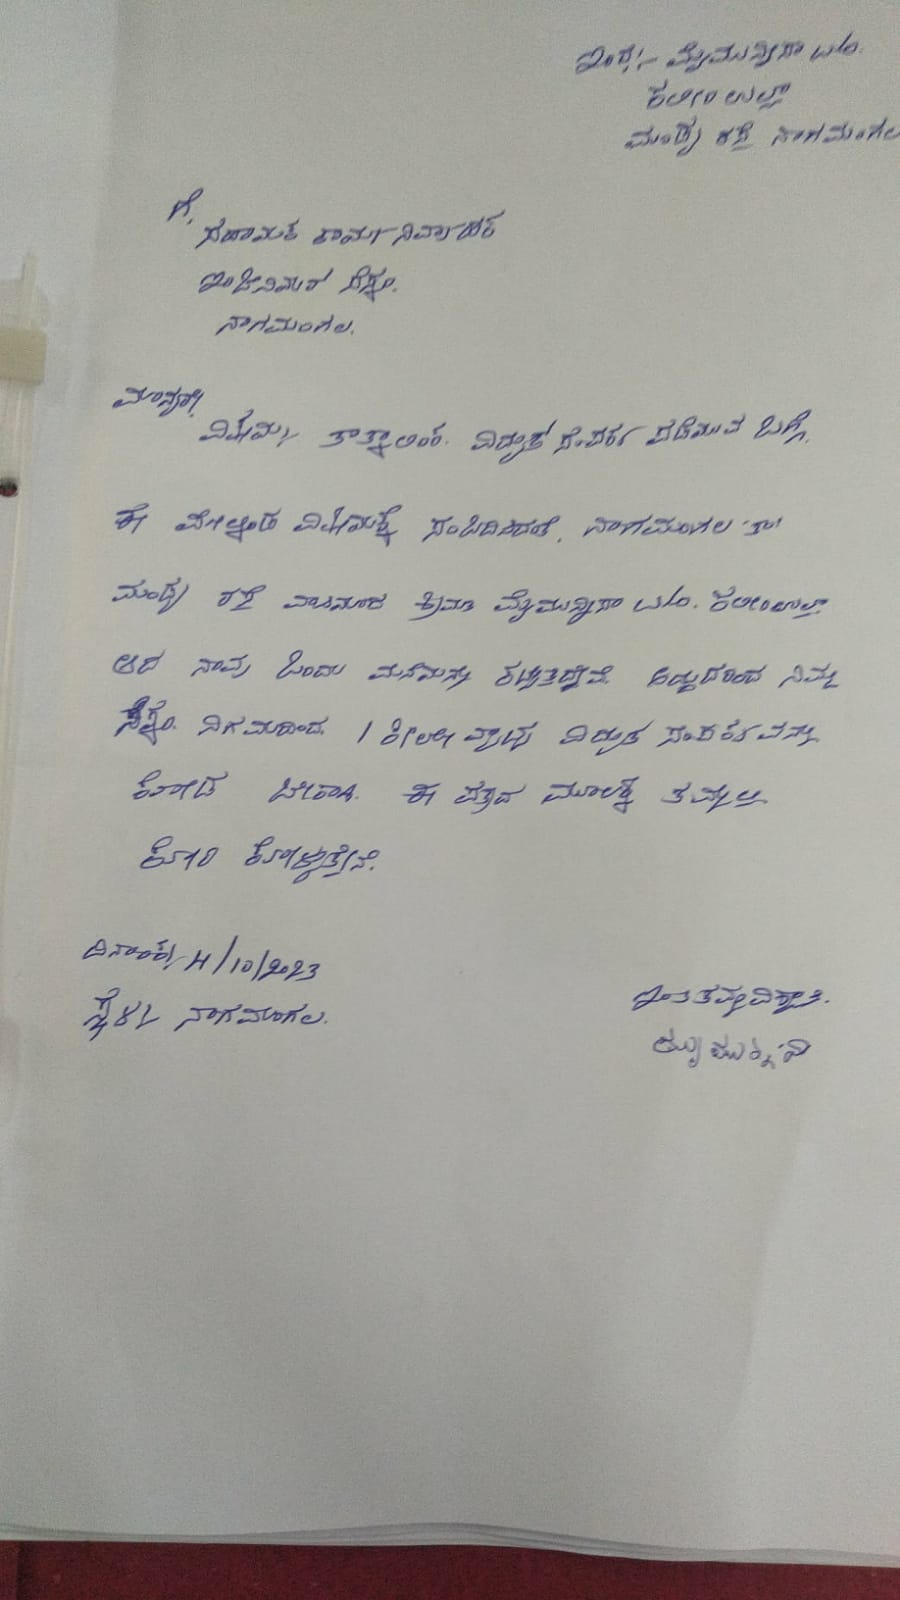 ಇಂದ:- ಮೈಮುನ್ನೀಸಾ
ಕಲೀಂ ಉಲ್ಲಾ
ಮಂಡ್ಯ ರಸ್ತೆ ನಾಗಮಂಗಲ
ಗೆ,
ಸಹಾಯಕ ಕಾರ್ಯನಿರ್ವಾಹಕ
ಇಂಜಿನಿಯರ್ ಸೆಸ್ಕಂ.
ನಾಗಮಂಗಲ.
ಮಾನ್ಯರೇ,
ವಿಷಯ/ ತಾತ್ಕಾಲಿಕ. ವಿದ್ಯುತ್ ಸಂಪರ್ಕ ಪಡೆಯುವ ಬಗ್ಗೆ.
ಈ ಮೇಲ್ಕಂಡ ವಿಷಯಕ್ಕೆ ಸಂಬದಿಸಿದಂತೆ, ನಾಗಮಂಗಲ 'ತಾ'
ಮಂಡ್ಯ ರಸ್ತೆ ಮೈಮುನ್ನೀಸಾ ಕಲೀಂಉಲ್ಲಾ
ಆದ ನಾವು ಒಂದು ಮನೆಯನ್ನು ಕಟ್ಟುತ್ತಿದ್ದೇವೆ. ಆದ್ದುದರಿಂದ ನಿಮ್ಮ
ಸೆಸ್ಕಂ. ನಿಗಮದಿಂದ. 1 ಕೀಲೋ ವ್ಯಾಟ್ಸ ವಿದ್ಯುತ ಸಂಪರ್ಕವನ್ನು
ಕೊಡ ಬೇಕಾಗಿ. ಈ ಪತ್ರದ ಮೂಲಕ ತಮ್ಮಲ್ಲಿ
ಕೋರಿ ಕೊಳ್ಳುತ್ತೇನೆ.
ದಿನಾಂಕ/ 4/10/2023
ಸ್ಥಳ/ ನಾಗಮಂಗಲ.
ಇಂತಿ ತಮ್ಮ ವಿಶ್ವಾಸಿ.